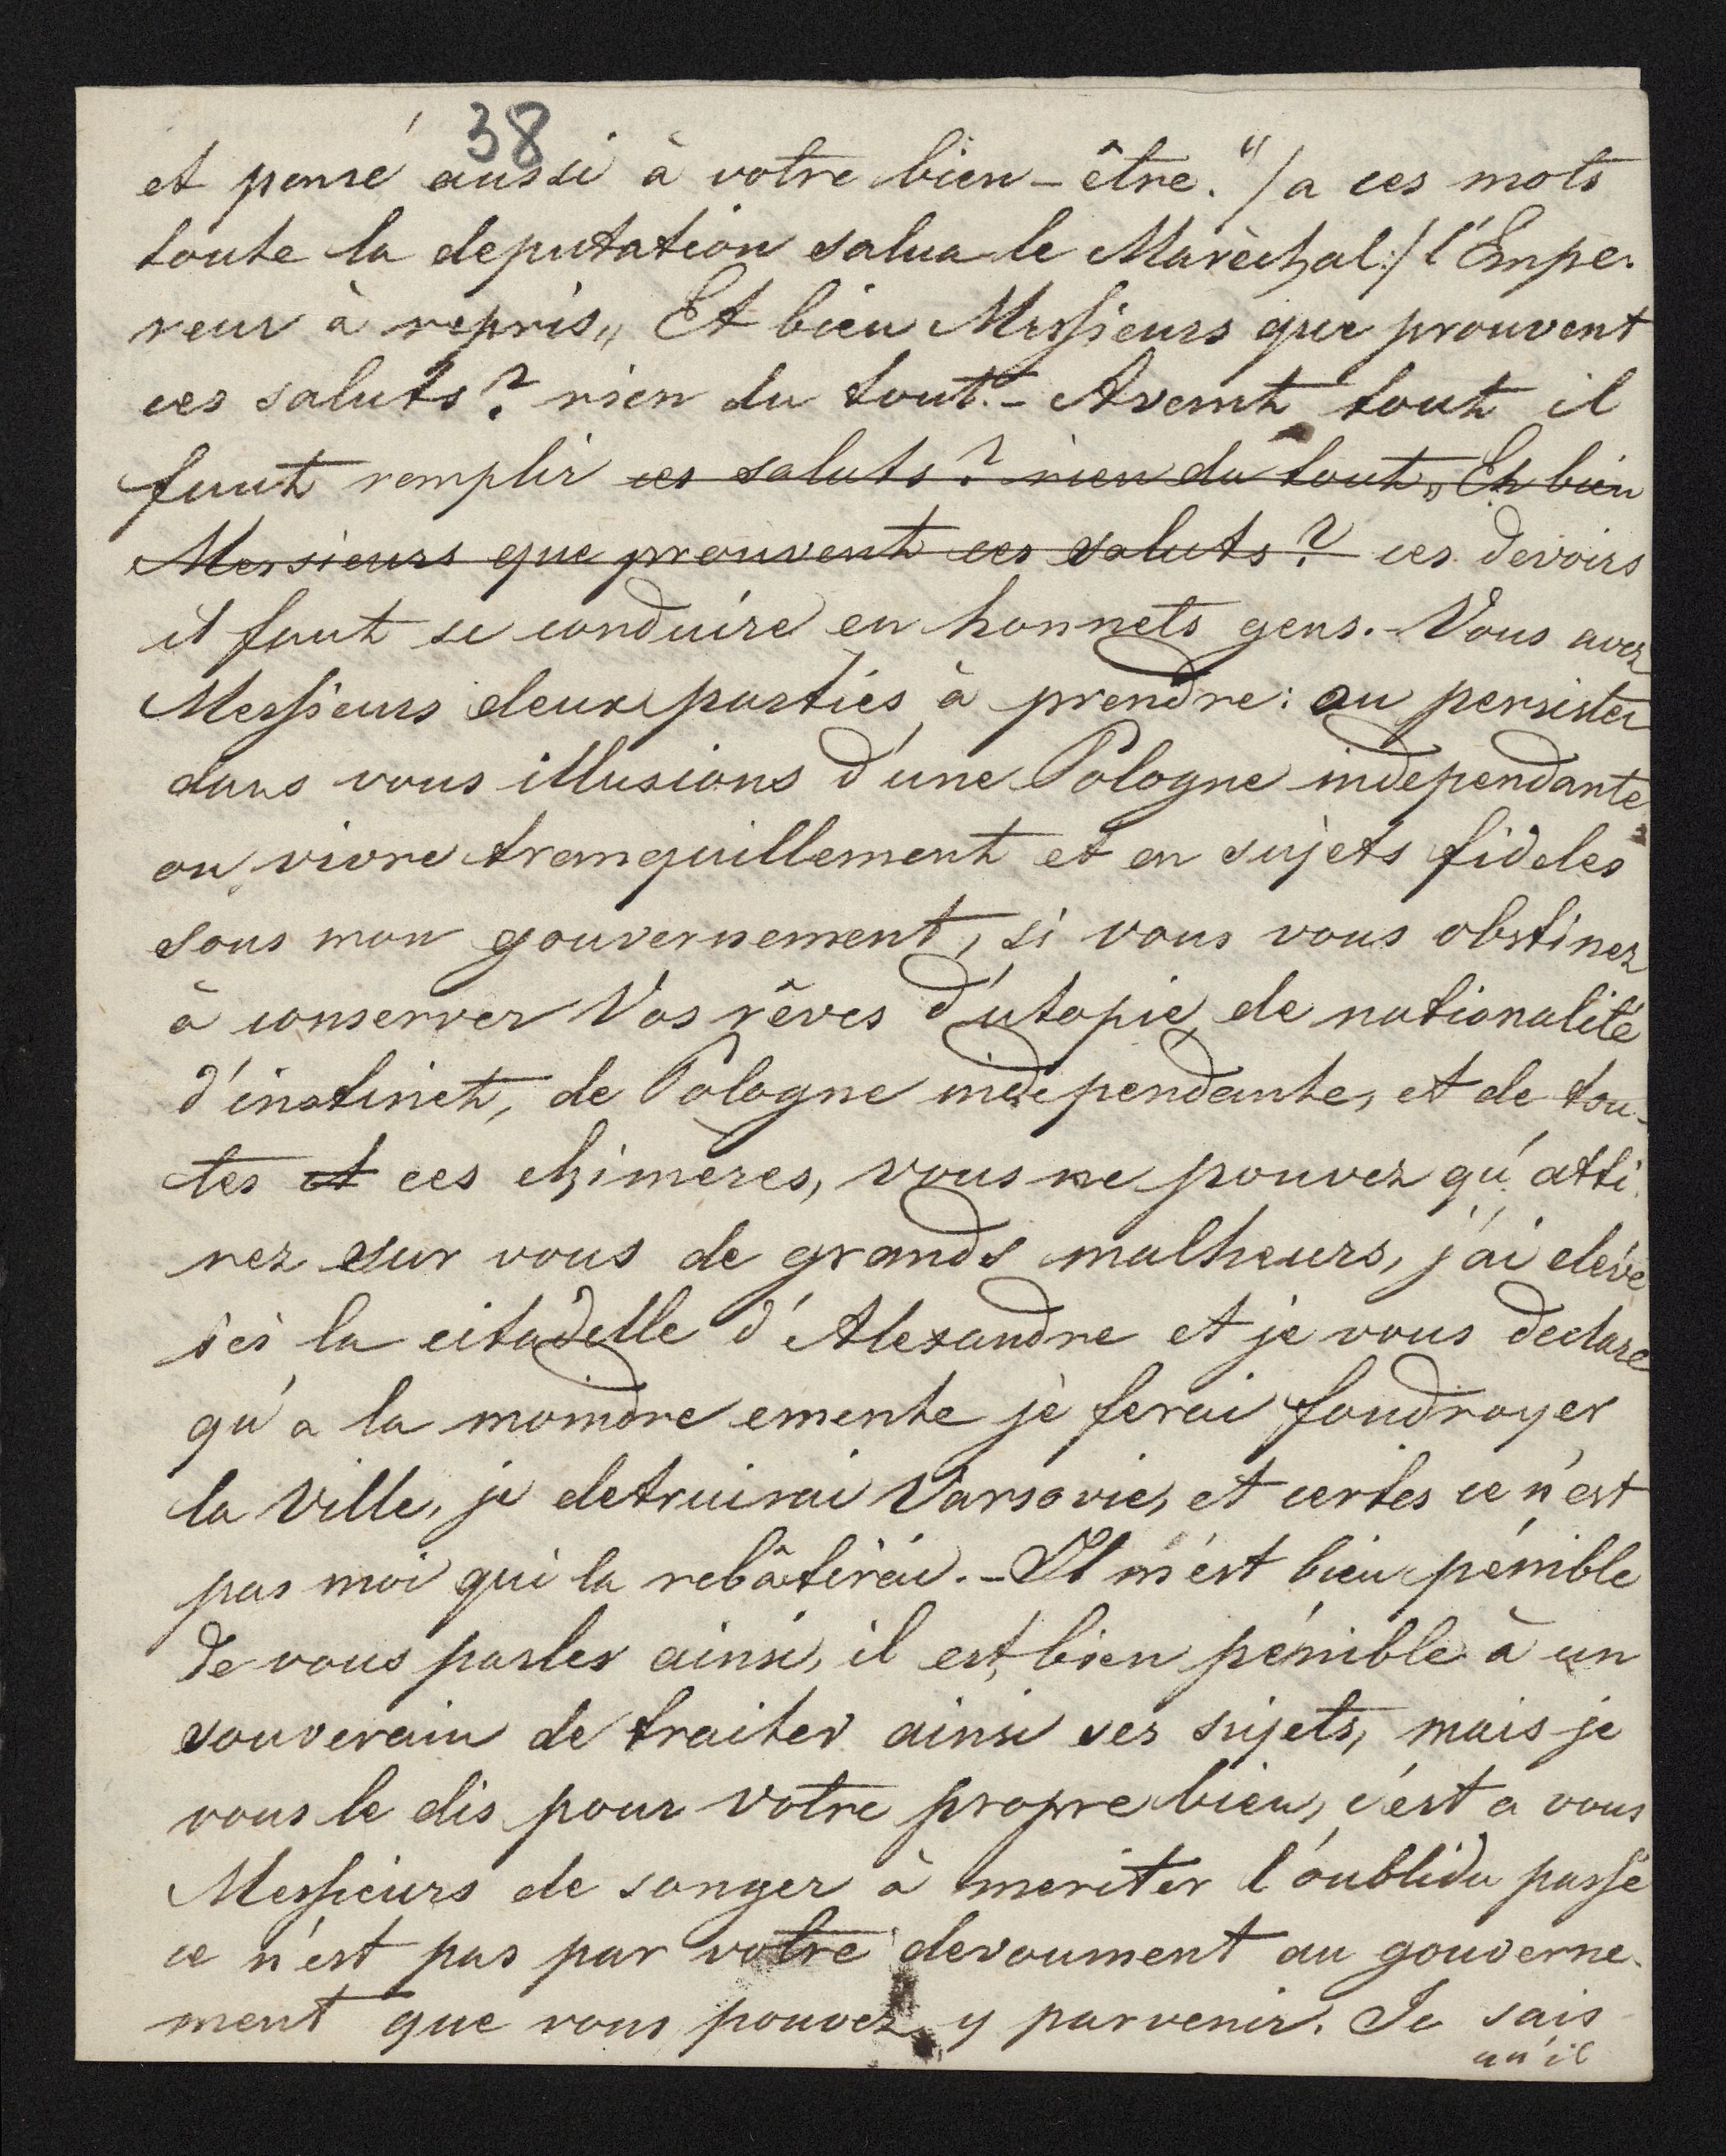 38
et pensé aussi à votre bien-être." /a ces mots
toute la deputation salua le Marèchal:/ l'Empe-
reur à repris „ Et bien Messieurs que prouvent
ces saluts? rien du tout.- Avant tout il
faut remplir ces saluts? rien du tout „ Et bien
Messieurs que prouvent ces saluts? ces devoirs
il faut se conduire en honnets gens.- Vous avez
Messieurs deux parties à prendre: ou persister
dans vous illusions d'une Pologne independante
ou vivre tranquillement et en sujets fideles
sous mon gouvernement, si vous vous obstinez
à conserver Vos rêves d'utopie, de nationalité
d'instinct, de Pologne independante, et de tou-
tes et ces chimeres, vous ne pouvez qu'atti-
rez sur vous de grands malheurs, j'ai elévé
ici la citadelle d'Alexandre et je vous declare
qu'a la moindre emente je ferai foudroyer
la Ville, je detruirai Varsovie, et certes ce n'est
pas moi qui la rebâtirai.- Il m'est bien pénible
de vous parler ainsi, il est bien pénible à un
souverain de traiter ainsi ses sujets, mais je
vous le dis pour votre propre bien, c'est a vous
Messieurs de songer à meriter l'oubli du passé
ce n'est pas par votre devoument au gouverne-
ment que vous pouvez y parvenir. Je sais
qu'il